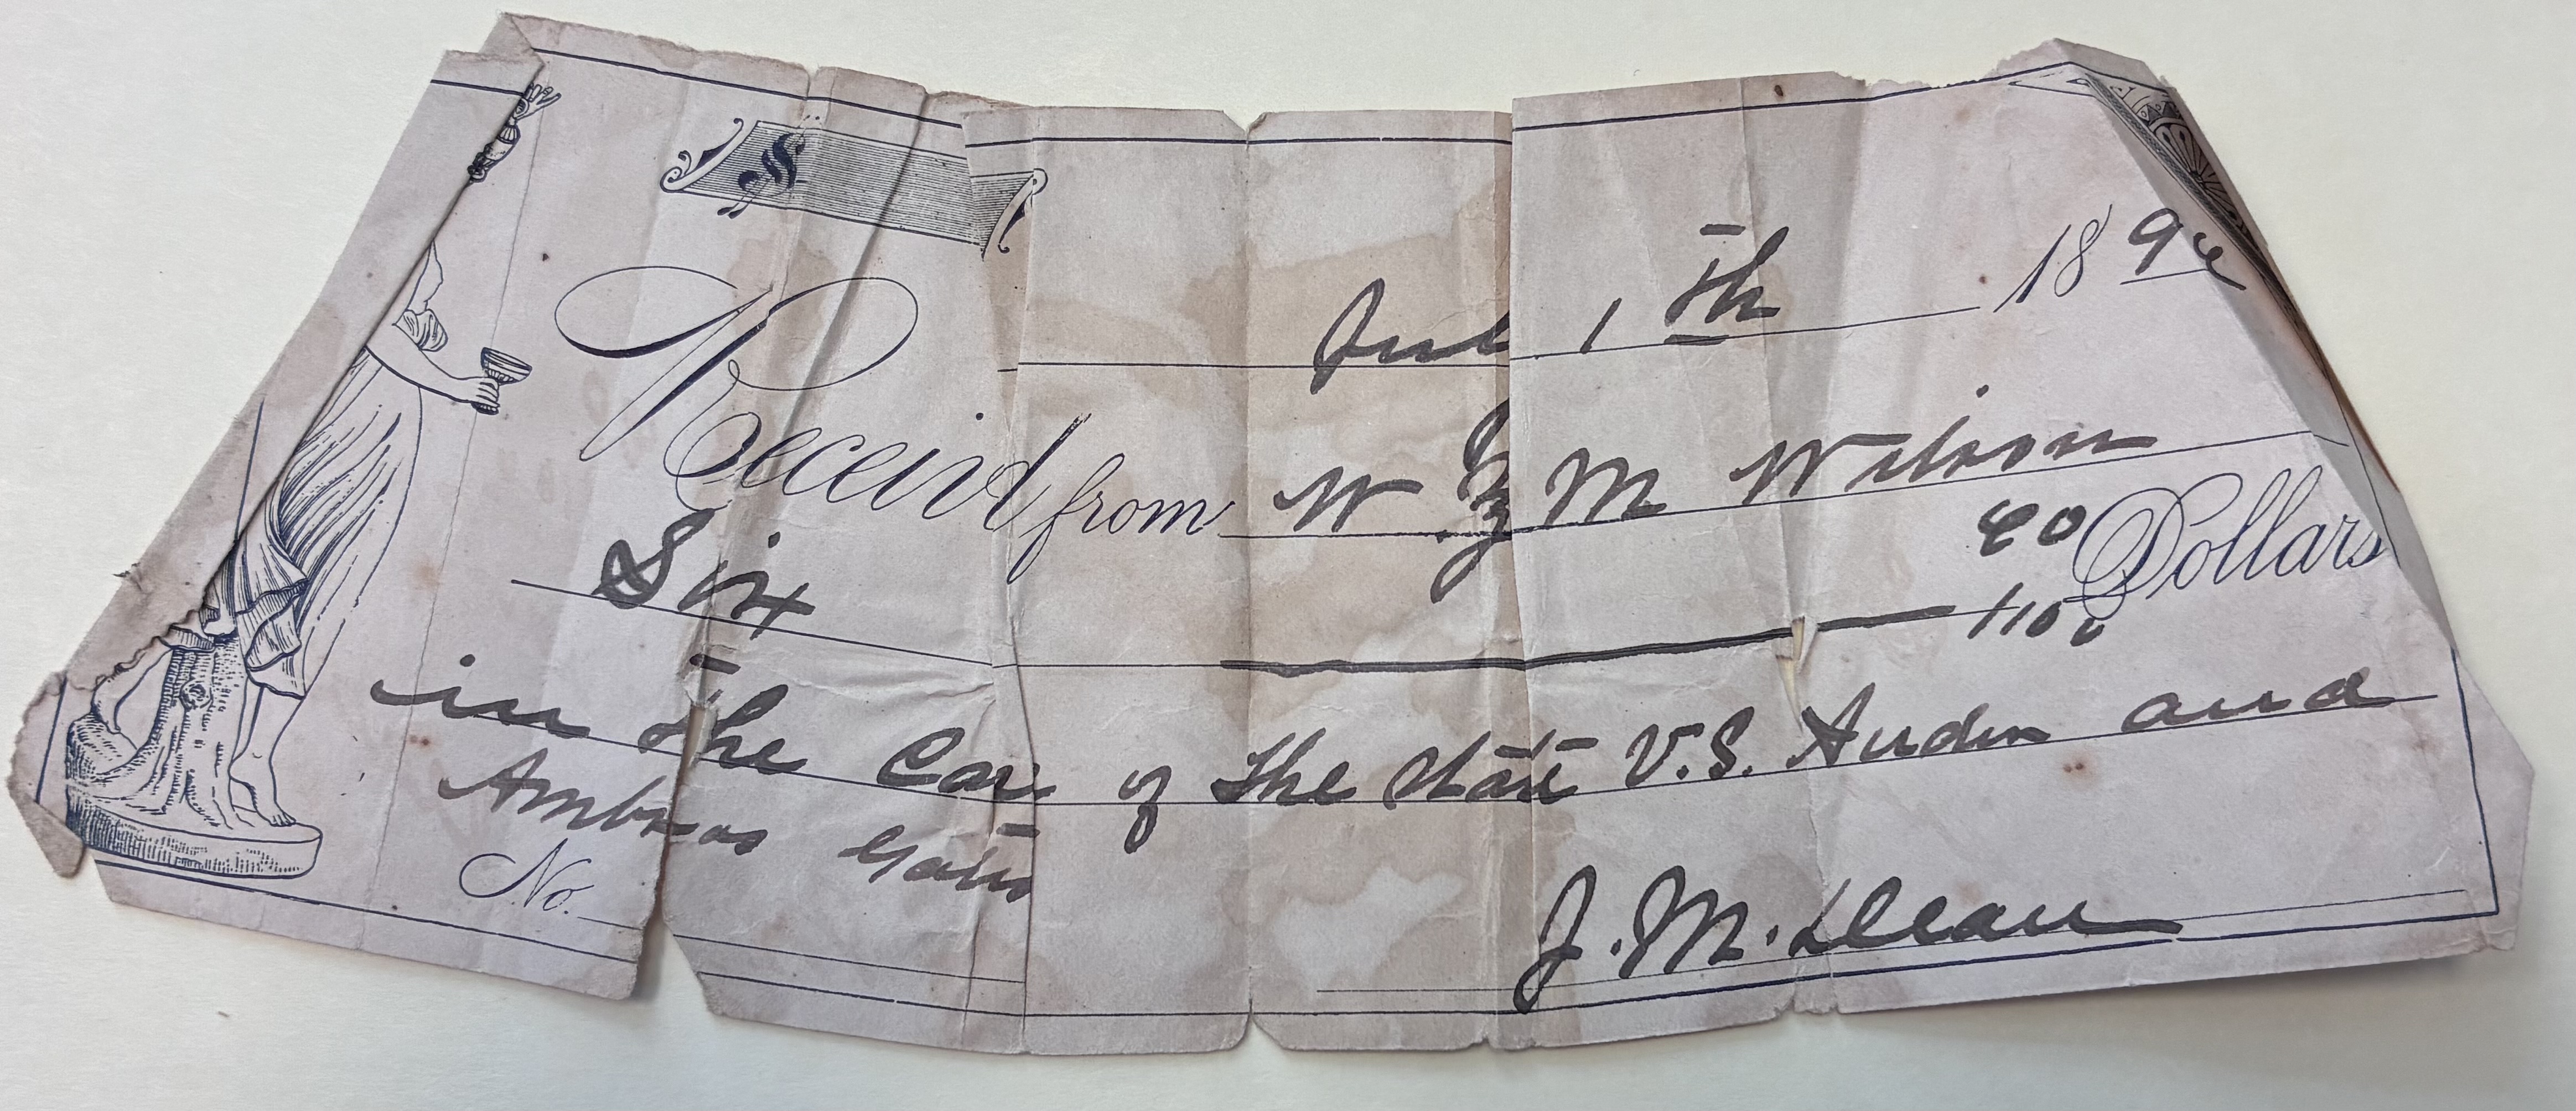 $
Jul 1th 18 9
Receivd from W M Wilson
Six 80/100 Dollars
in the Cas of the State V.S. and
Ambros Yates
No.
J. M. Dean